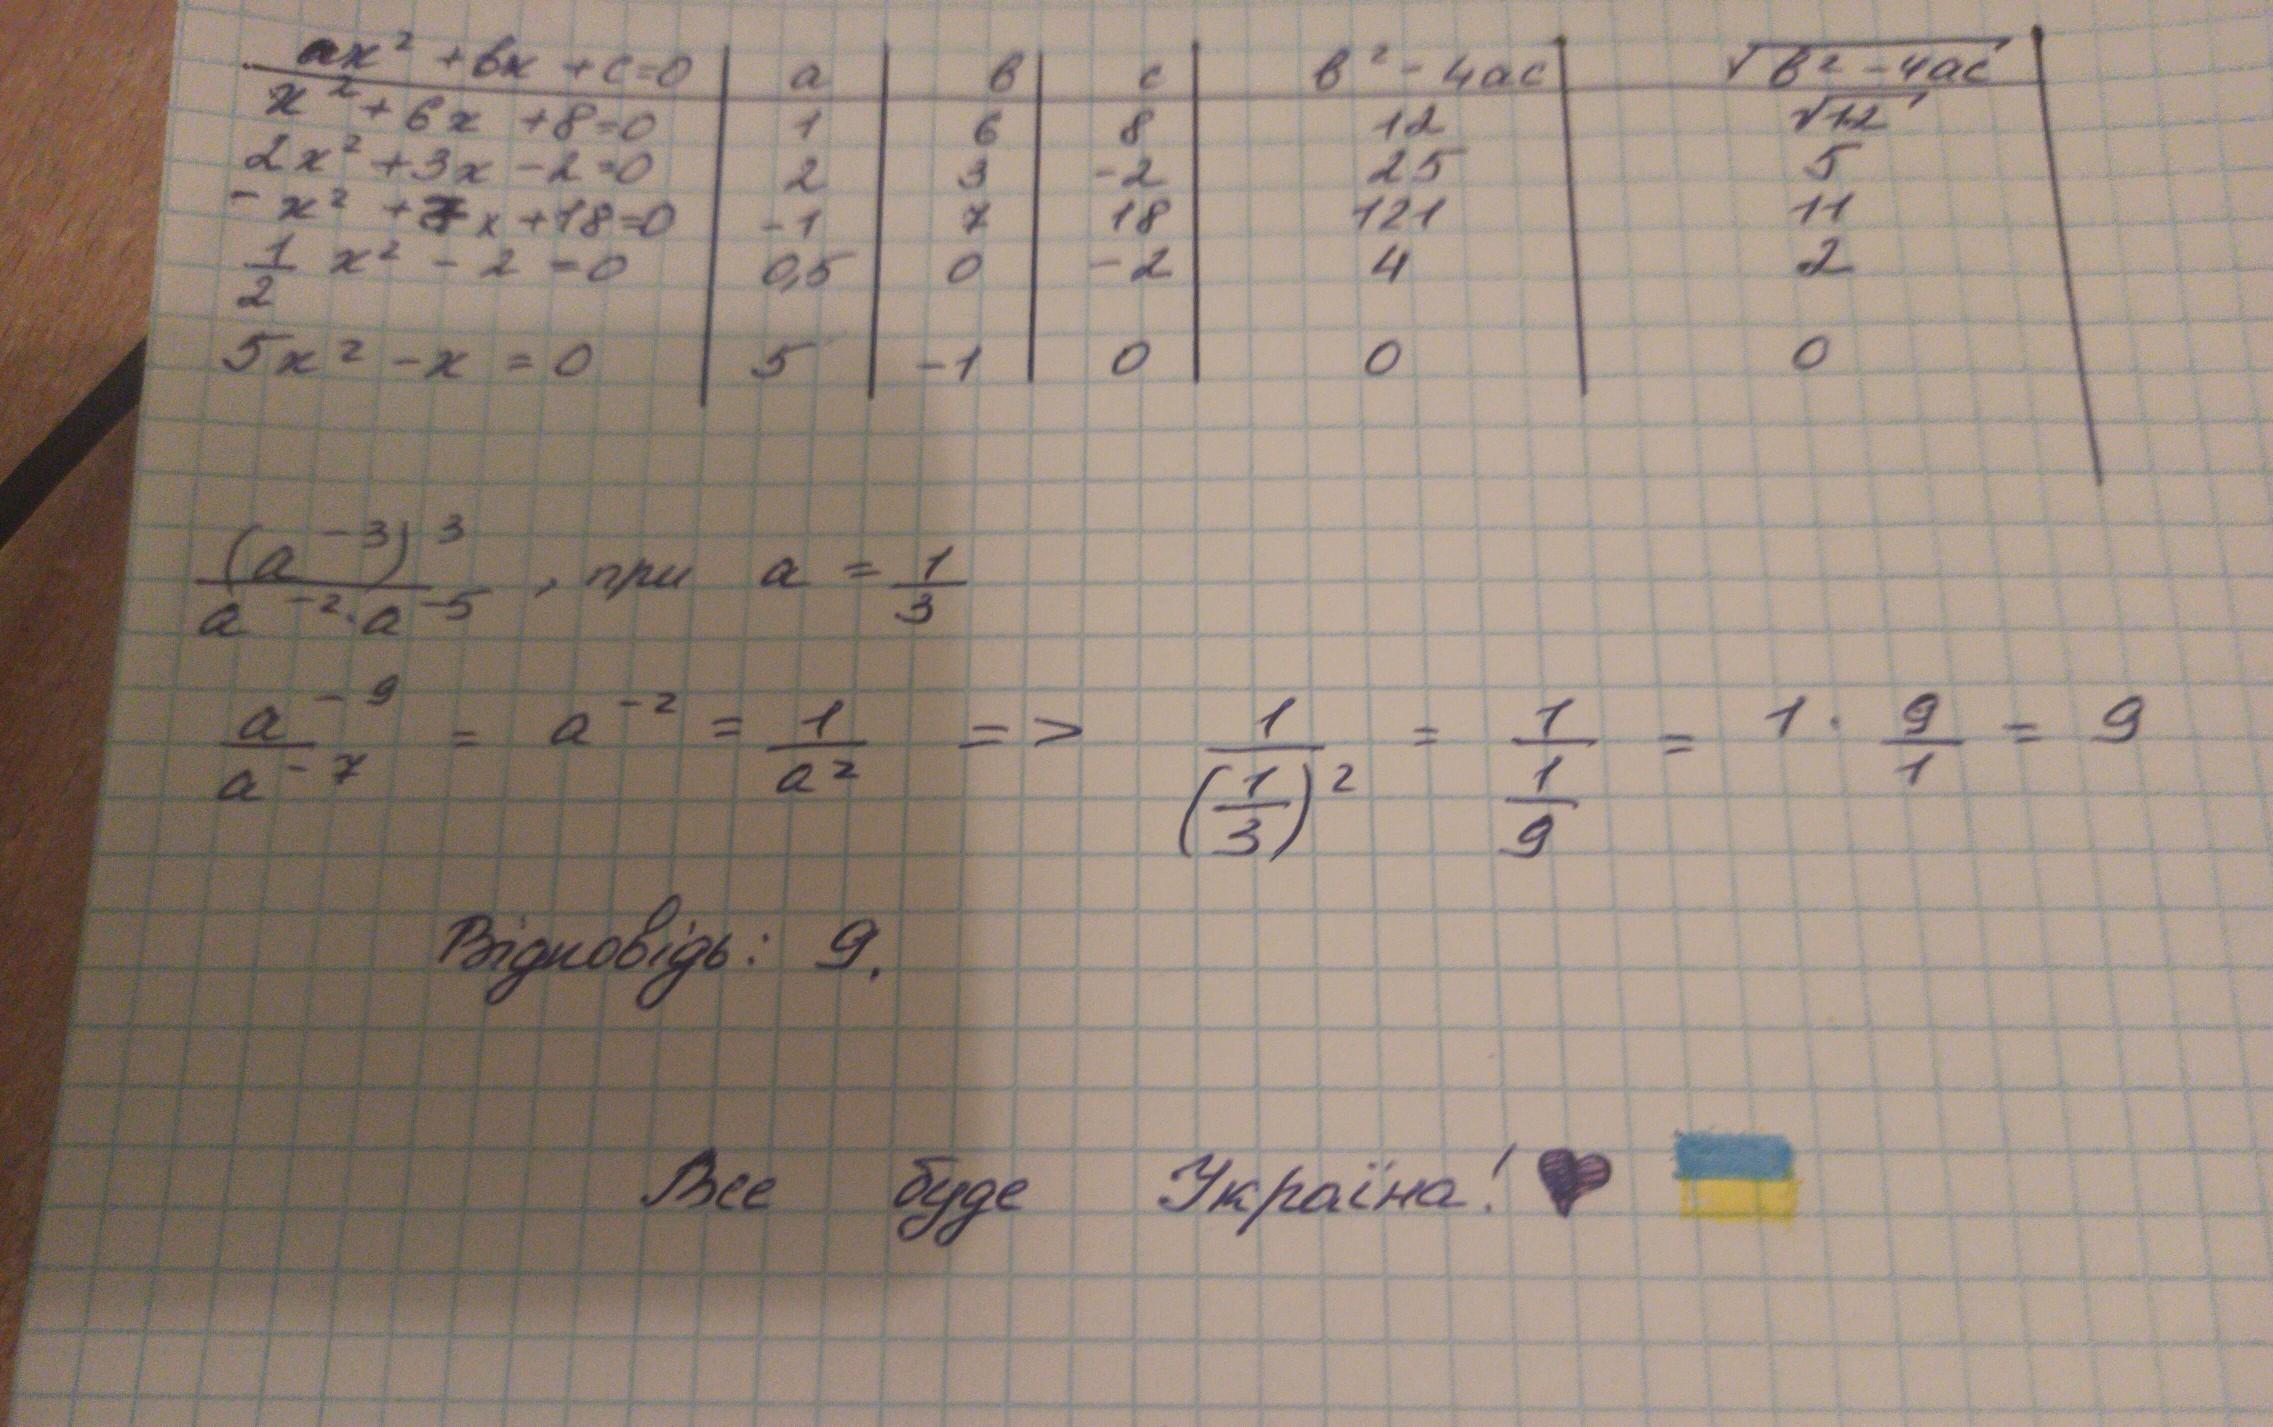 ax² + bx + c = 0 | a | b | c | b² - 4ac | √(b² - 4ac)
x² + 6x + 8 = 0 | 1 | 6 | 8 | 12 | √12
2x² + 3x - 2 = 0 | 2 | 3 | -2 | 25 | 5
-x² + 7x + 18 = 0 | -1 | 7 | 18 | 121 | 11
1/2 x² - 2 = 0 | 0,5 | 0 | -2 | 4 | 2
5x² - x = 0 | 5 | -1 | 0 | 0 | 0
(a⁻³)³ / (a⁻² · a⁻⁵), при a = 1/3
a⁻⁹ / a⁻⁷ = a⁻² = 1/a² => 1/(1/3)² = 1/(1/9) = 1 · 9/1 = 9
Відповідь: 9.
Все буде Україна!